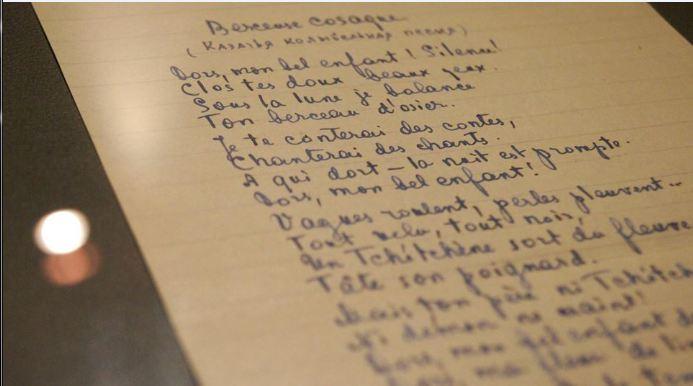 Berceuse cosaque
(Казачья колыбельная песня)
Dors, mon bel enfant! Silence!
Clos tes doux beaux yeux.
Sous la lune je balance
Ton berceau d'osier.
Je te conterai des contes,
Chanterai des chants.
A qui dort – la nuit est prompte.
Dors, mon bel enfant!
Vagues roulent, perles pleuvent...
Tout velu, tout noir,
Un Tchitchène sort du fleuve
Tâte son poignard.
Mais ton père ni Tchitch
Ni démon ne craint!
Dors, mon bel enfant